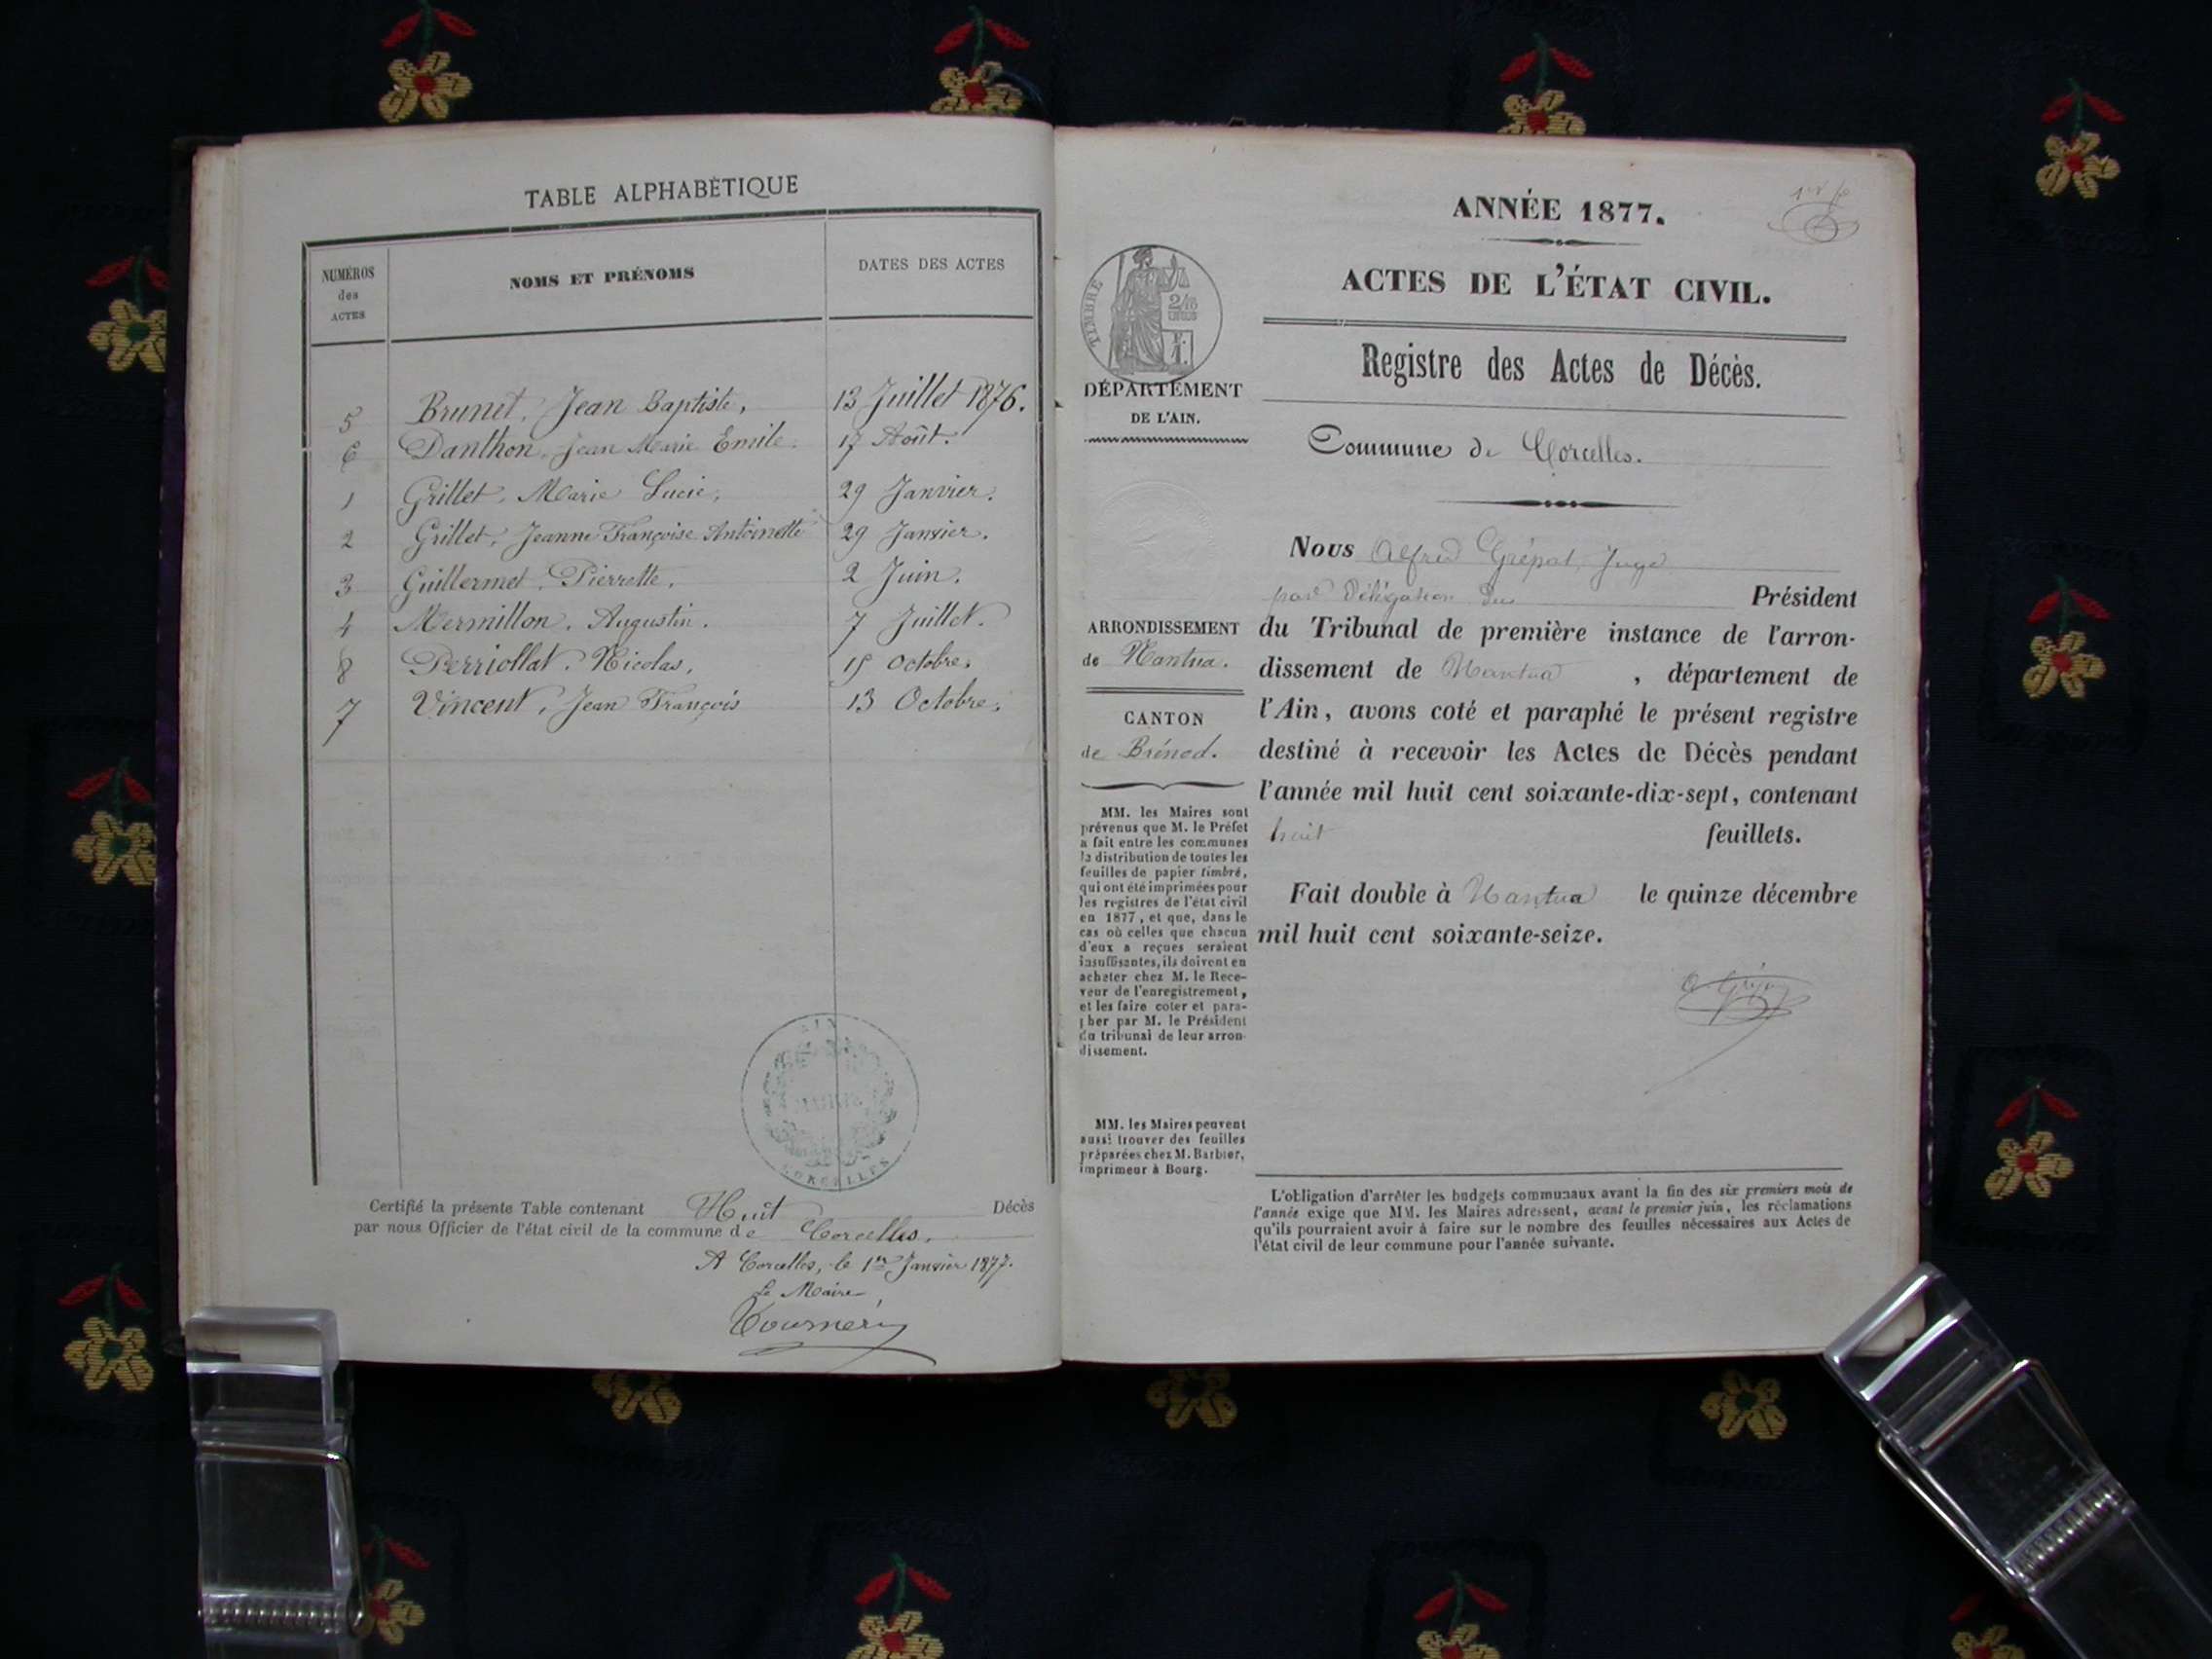 TABLE ALPHABÈTIQUE
NUMÉROS
des
ACTES
NOMS ET PRÉNOMS
DATES DES ACTES
5 Brunet, Jean Baptiste, 13 Juillet 1876.
6 Danthon, Jean Marie Emile. 17 Août.
1 Grillet, Marie Lucie, 29 Janvier.
2 Grillet, Jeanne Françoise Antoinette 29 Janvier.
3 Guillermet, Pierrette, 2 Juin.
4 Mermillon, Augustin. 7 Juillet.
8 Perriollat, Nicolas, 15 Octobre.
7 Vincent, Jean François 13 Octobre.
AIN
MAIRIE
CORCELLES
Certifié la présente Table contenant Huit Décès
par nous Officier de l'état civil de la commune de Corcelles.
A Corcelles, le 1er Janvier 1877.
Le Maire,
ANNÉE 1877.
ACTES DE L'ÉTAT CIVIL.
Registre des Actes de Décès.
Commune de Corcelles.
TIMBRE
2/10
EN SUS
DÉPARTEMENT
DE L'AIN.
ARRONDISSEMENT
de Nantua.
CANTON
de Brénod.
MM. les Maires sont
prévenus que M. le Préfet
a fait entre les communes
la distribution de toutes les
feuilles de papier timbré,
qui ont été imprimées pour
les registres de l'état civil
en 1877, et que, dans le
cas où celles que chacun
d'eux a reçues seraient
insuffisantes, ils doivent en
acheter chez M. le Rece-
veur de l'enregistrement,
et les faire coter et para-
pher par M. le Président
du tribunal de leur arron-
dissement.
MM. les Maires peuvent
aussi trouver des feuilles
préparées chez M. Barbier,
imprimeur à Bourg.
Nous Alfred Grépat, Juge
par délégation du Président
du Tribunal de première instance de l'arron-
dissement de Nantua, département de
l'Ain, avons coté et paraphé le présent registre
destiné à recevoir les Actes de Décès pendant
l'année mil huit cent soixante-dix-sept, contenant
huit feuillets.
Fait double à Nantua le quinze décembre
mil huit cent soixante-seize.
L'obligation d'arrêter les budgets communaux avant la fin des six premiers mois de
l'année exige que MM. les Maires adressent, avant le premier juin, les réclamations
qu'ils pourraient avoir à faire sur le nombre des feuilles nécessaires aux Actes de
l'état civil de leur commune pour l'année suivante.